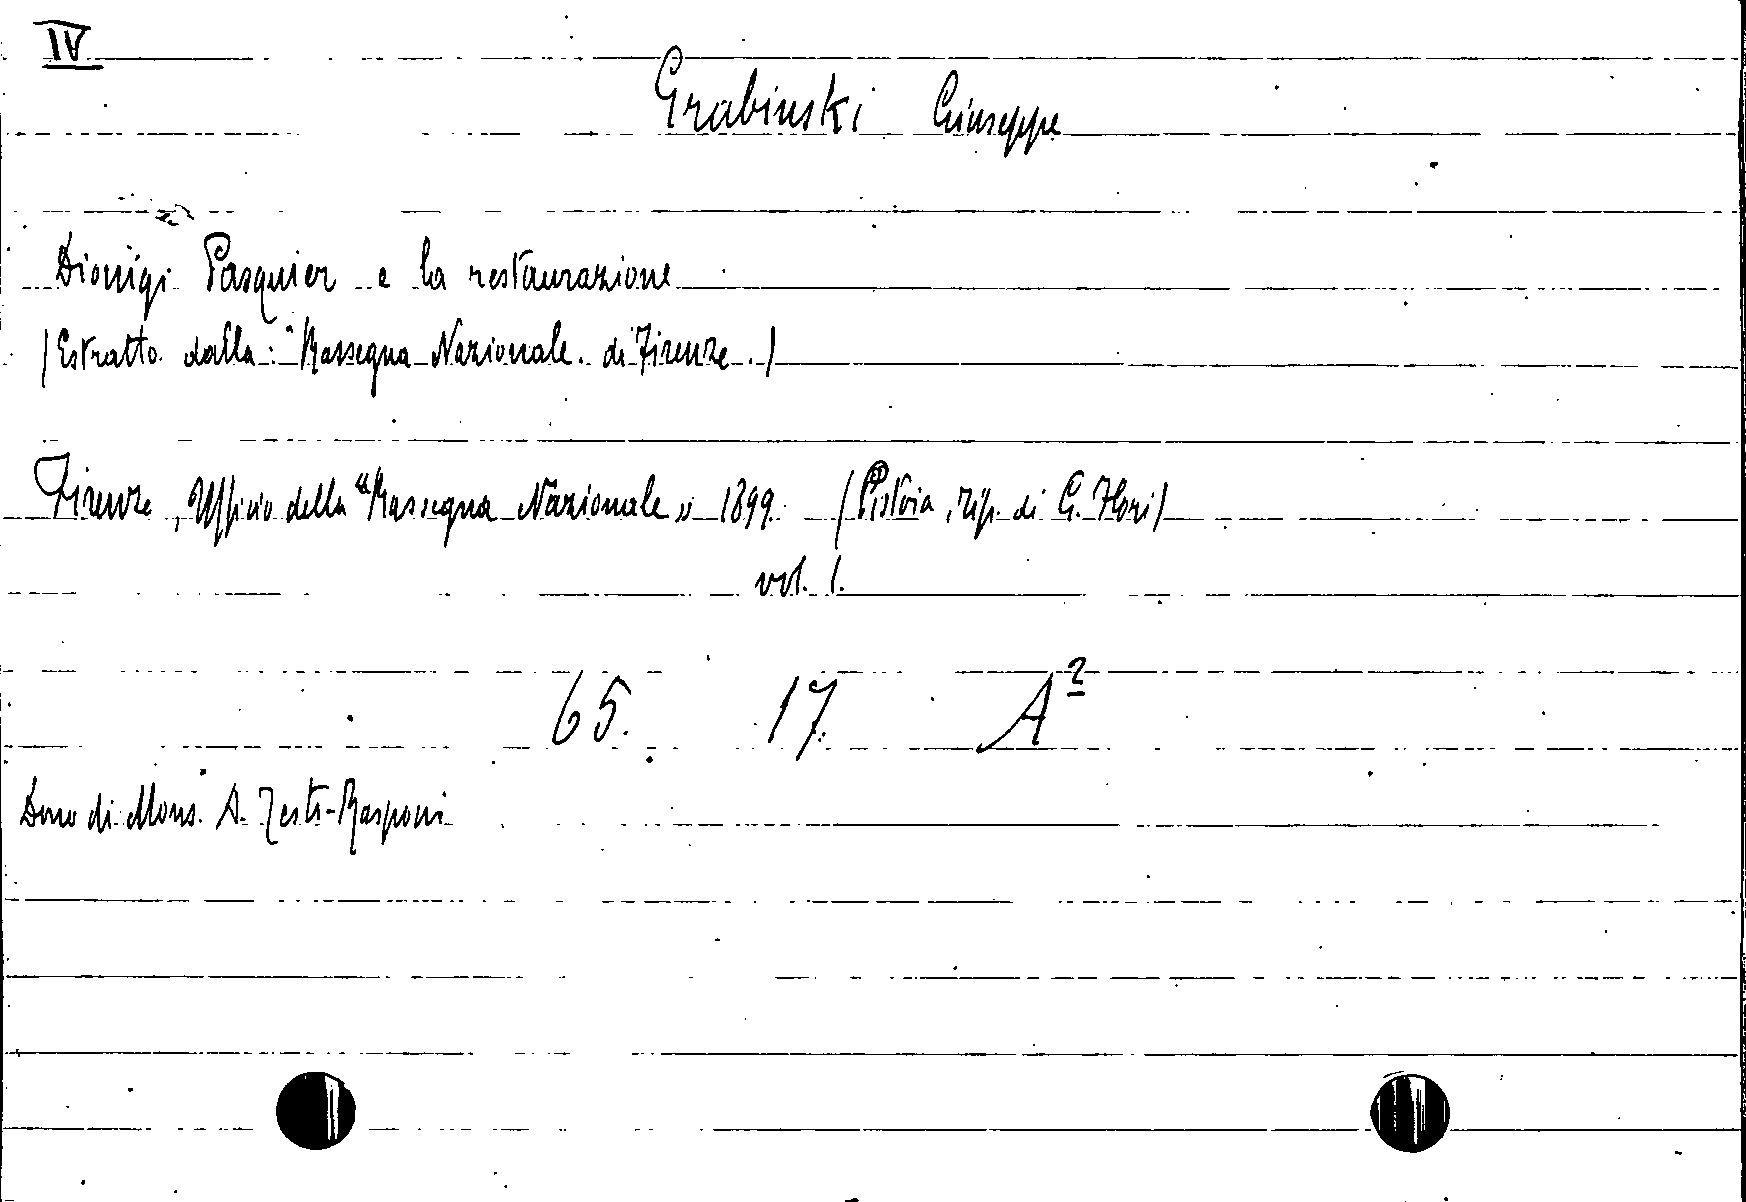 IV
Grabinski Giuseppe
Dionigi Pasquier e la restaurazione
(Estratto dalla: "Rassegna Nazionale di Firenze.)
Firenze, Ufficio della "Rassegna Nazionale" 1899. (Pistoia, Tip. di G. Flori)
vol. 1.
65. 17. A²
Dono di Mons. A. Testi-Rasponi